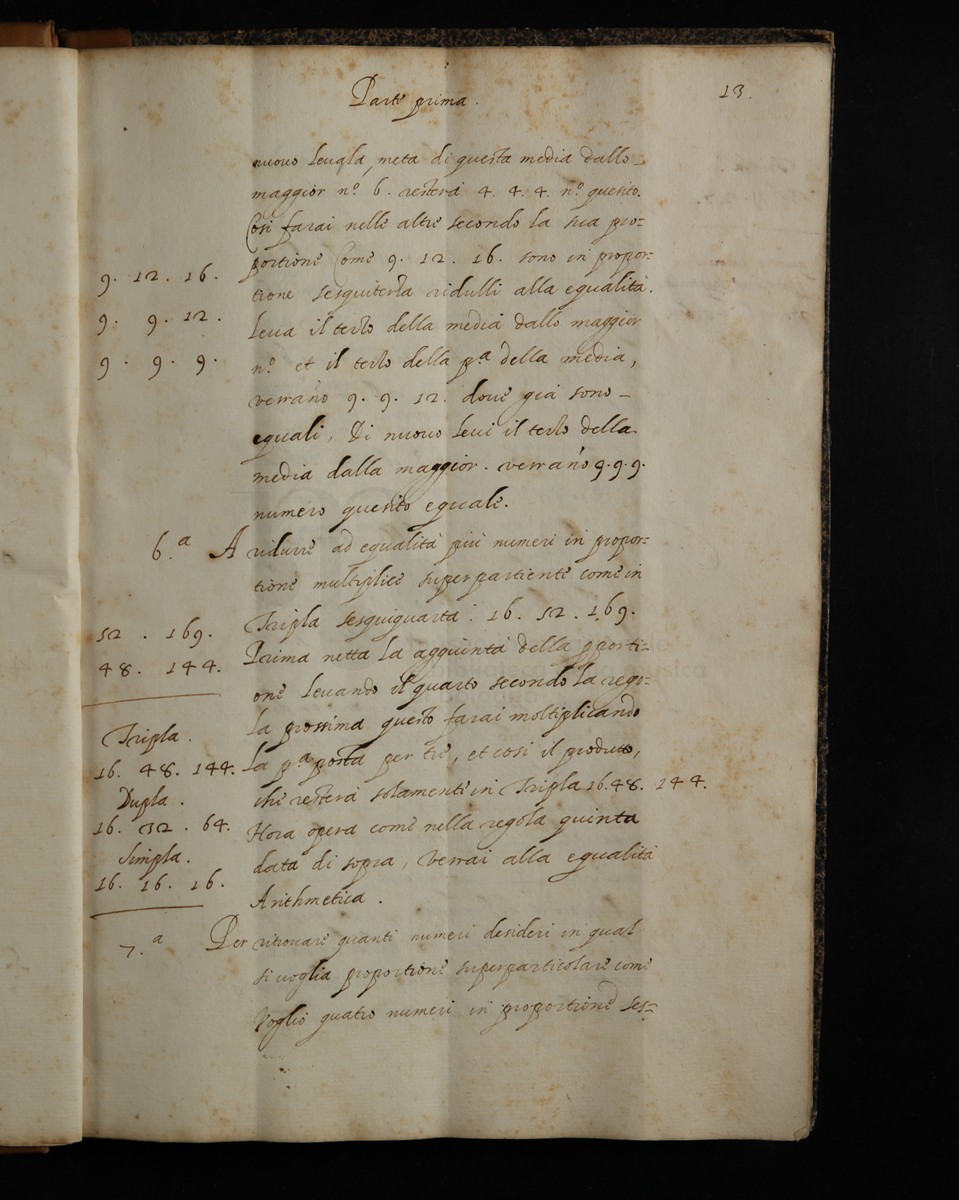 Parte prima.
13.
nuouo leuala meta di questa media dallo
maggior nº 6. resterà 4. 4. 4. nº quesito.
Cosi farai nelle altre secondo la sua pro=
portione Come 9. 12. 16. sono in propor=
tione sesquiterza ridulli alla egualità.
Leua il terzo della media dallo maggior
nº et il terzo della pª della media,
verrano 9. 9. 12. doue già sono
equali, Di nuouo leui il terzo della
media dalla maggior. verrano 9.9.9.
numero quesito eguale.
9. 12. 16.
9. 9. 12.
9. 9. 9.
6.ª A ridurre ad egualità più numeri in propor=
tione multiplice superpartiente come in
Tripla sesquiquarta: 16. 52. 169.
Prima netta la aggiunta della pporti=
one leuando il quarto secondo la rego=
la prossima questo farai moltiplicando
la pª posta per tre, et cosi il produto,
che resterà solamente in Tripla 16.48. 144.
Hora opera come nella regola quinta
data di sopra, Verrai alla egualità
Arithmetica.
52. 169.
48. 144.
Tripla.
16. 48. 144.
Dupla.
16. 32. 64.
Simpla.
16. 16. 16.
7.ª Per ritrouare quanti numeri desideri in qual
si uoglia proportione superparticolare come
Voglio quatro numeri in proportione ses=